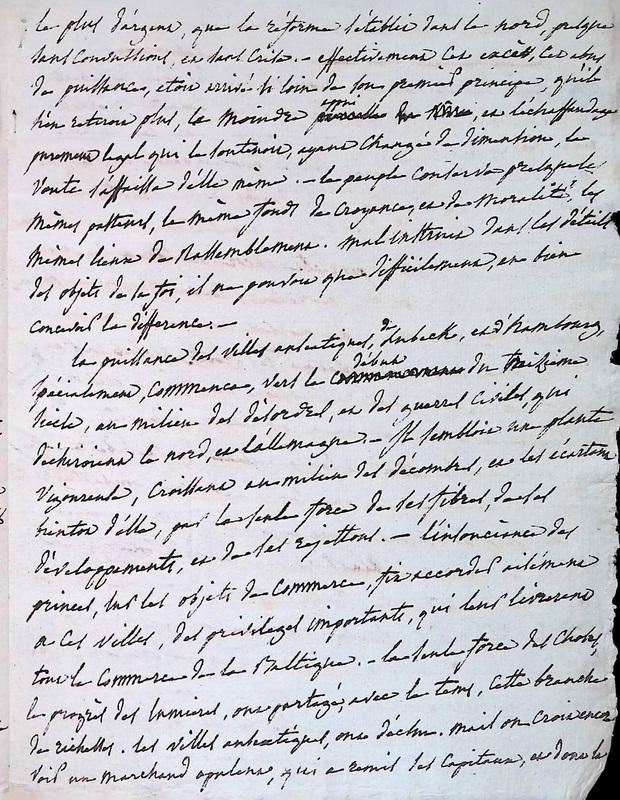 le plus d'argent, que la réforme s'établit dans le nord, presque
sans Convulsions, et sans Crise. - effectivement Ces excès, Ces abus
de puissance, etoit arrivé si loin de son premier principe, qu'il
n'en retiroit plus, le moindre appui et l'échaffaudage
purement legal qui le soutenoit, ayant Changé de dimention, la
Voute s'affaissa d'elle même. - le peuple Conserva presque les
mêmes pasteurs, le même fond de Croyance, et de Moralité, les
mêmes liens de Rassemblement. mal instruit dans les détails
des objets de la foi, il ne pouvoit que difficilement, en bien
concevoir la différence. -
la puissance des villes anséatiques, de Lubeck, et d'Hambourg,
spécialement, Commença, vers le début du treizième
siecle, au milieu des désordres, et des guerres Civiles, qui
déchiroient le nord, et l'allemagne. - Il sembloit une plante
Vigoureuse, Croissant au milieu des décombres, et les écartant
d'elle, par la seule force de ses fibres, de ses
développements, et de ses rejettons. - l'insouciance des
princes, sur les objets de Commerce, fit accorder aisément
a Ces villes, des privileges importants, qui leur livrerent
tout le Commerce de la Baltique. - la seule force des Choses,
le progrès des lumieres, ont partagé, avec le tems, Cette branche
de richesses. les villes anséatiques, ont déchu. mais on Croit encor
Voir un marchand opulent, qui a remis ses Capitaux, et dont la